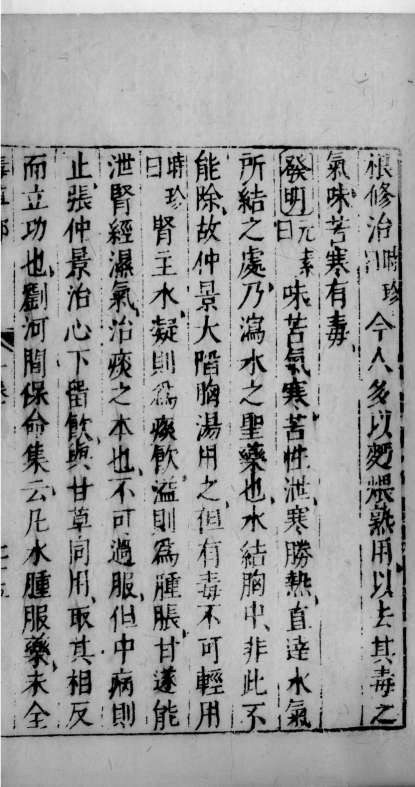 根修治時珍曰今人多以麪煨熟用以去其毒之
氣味苦寒有毒
發明元素曰味苦氣寒苦性泄寒勝熱直達水氣
所結之處乃瀉水之聖藥也水結胸中非此不
能除故仲景大䧟胸湯用之但有毒不可輕用
時珍曰腎主水凝則爲痰飲溢則爲腫脹甘遂能
泄腎經濕氣治痰之本也不可過服但中病則
止張仲景治心下留飲與甘草同用取其相反
而立功也劉河間保命集云凡水腫服藥未全